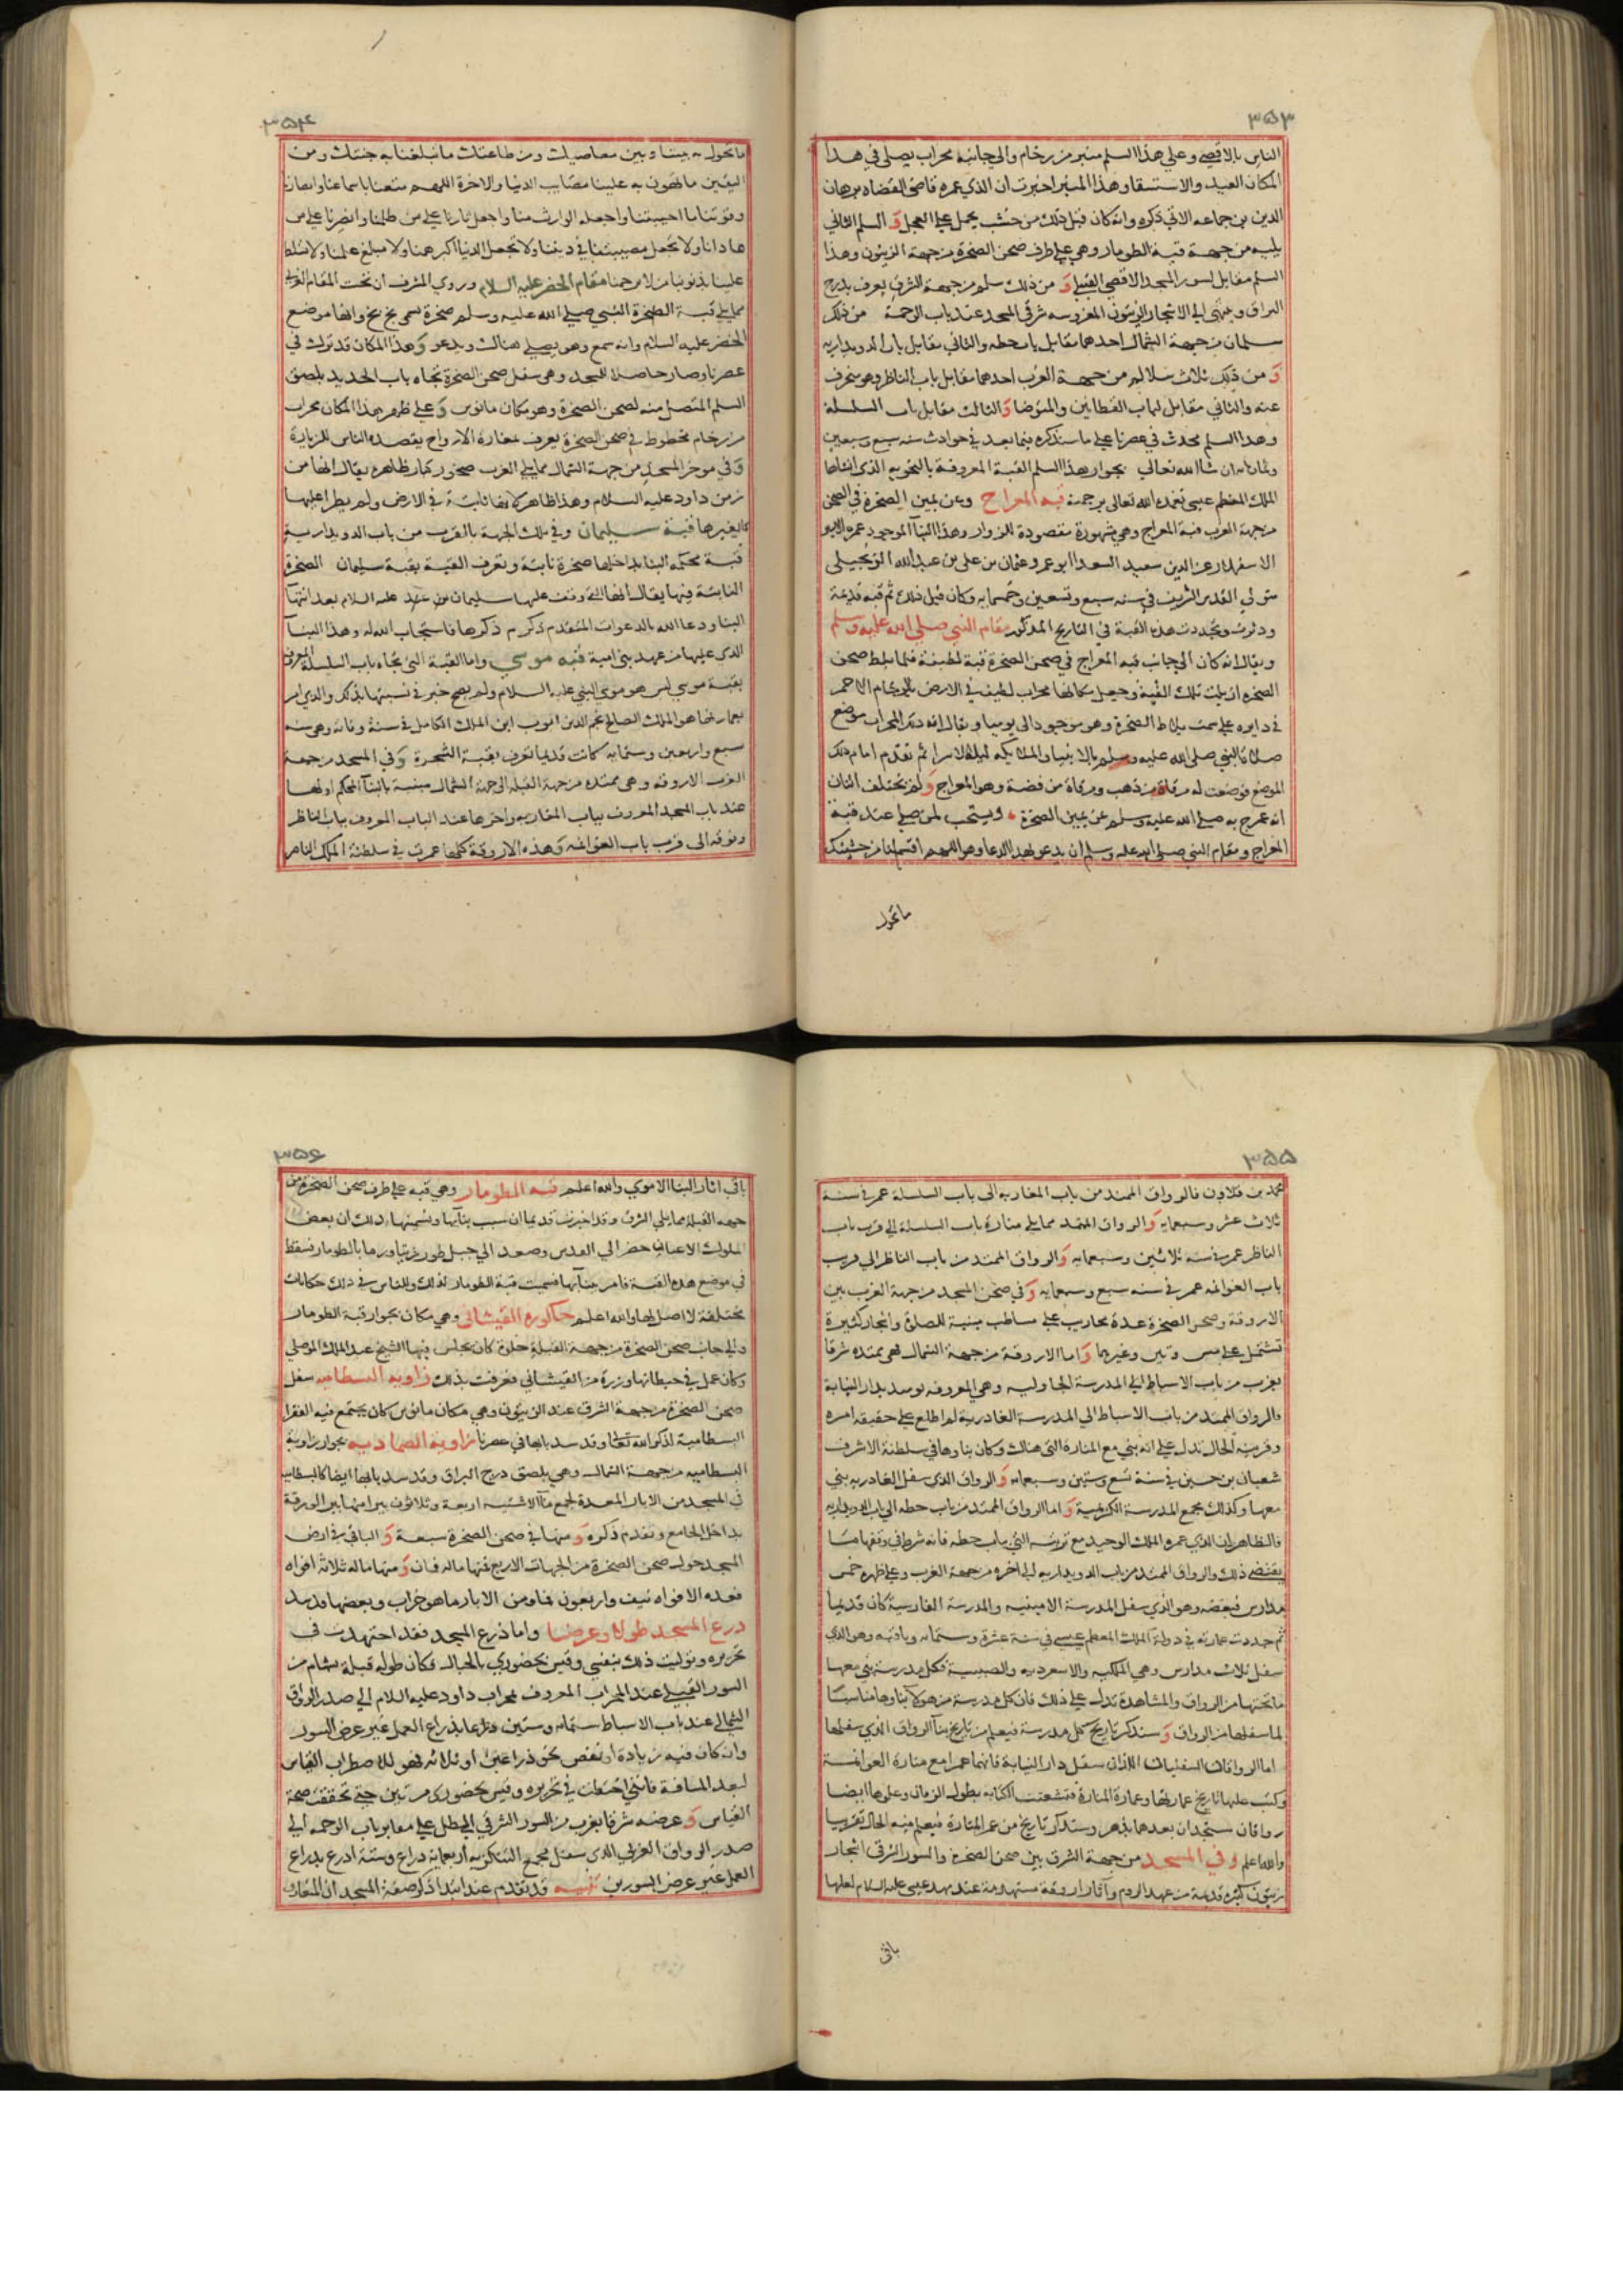 ٣٥٣
الناس بالاقصي وعلي هذا السلم منبر من رخام والي جانبه محراب يصلي في هذا
المكان العيد والاستسقا وهذا المنبر اخبرت ان الذي عمره قاضي القضاه برهان
الدين بن جماعه الاتي ذكره وانه كان قبل ذلك من خشب يحمل علي العجل وَ السلم الثاني
يليه من جهة قبة الطومار وهي علي طرف صحن الصخرة من جهة الزيتون وهذا
السلم مقابل لسور المسجد الاقصي القبلي وَ من ذلك سلم من جهة الشرق يعرف بدرج
البراق وينتهي الي الاشجار الزيتون المغروسه شرقي المسجد عند باب الرحمة من ذلك
سلمان من جهة الشمال احدهما مقابل باب حطه والثاني مقابل باب الدويداريه
وَ من ذلك ثلاث سلالم من جهة الغرب احدهما مقابل باب الناظر وهو منحرف
عنه والثاني مقابل لباب القطانين والمتوضا وَالثالث مقابل باب السلسلة
وهذا السلم محدث في عصرنا علي ما سنذكره فيما بعد في حوادث سنه سبع وسبعين
وثمانمايه ان شا الله تعالي بجوار هذا السلم القبة المعروفة بالنحويه الذي انشاها
الملك المعظم عيسي تغمده الله تعالي برحمته قبه المعراج وعن يمين الصخرة في الصحن
من جهة الغرب قبة المعراج وهي مشهورة مقصودة للزوار وهذا البنا الموجود عمره الامير
الاسفهلار عز الدين سعيد السعدا ابو عمرو عثمان بن علي بن عبد الله الزنجيلي
متولي القدس الشريف في سنه سبع وتسعين وخمسمايه وكان قبل ذلك ثم قبه قديمة
ودثرت وتجددت هذه القبة في التاريخ المذكور مقام النبي صلي الله عليه وسلم
ويقال انه كان الي جانب قبه المعراج في صحن الصخرة قبة لطيفة فلما بلط صحن
الصخره ازيلت تلك القبة وجعل مكانها محراب لطيف في الارض بالرخام الاحمر
في دايره علي سمت بلاط الصخرة وهو موجود الي يومنا ويقال انه ذلك المحراب موضع
صلاة النبي صلي الله عليه وسلم بالانبيا والملايكه ليلة الاسرا ثم تقدم امام ذلك
الموضع فوضعت له مرقاة من ذهب ومرقاة من فضة وهو المعراج وَلم يختلف اثنان
انه عرج به صلي الله عليه وسلم عن يمين الصخرة ويستحب لمن صلي عند قبة
المعراج ومقام النبي صلي الله عليه وسلم ان يدعو بهذا الدعا وهو اللهم اقسم لنا من خشيتك
ما تحول
٣٥٤
ما تحول به بيننا وبين معاصيك ومن طاعتك ما تبلغنا به جنتك ومن
اليقين ما تهون به علينا مصايب الدنيا والاخرة اللهم متعنا باسماعنا وابصارنا
وقوتنا ما احييتنا واجعله الوارث منا واجعل ثارنا علي من ظلمنا وانصرنا علي من
عادانا ولا تجعل مصيبتنا في ديننا ولا تجعل الدنيا اكبر همنا ولا مبلغ علمنا ولا تسلط
علينا بذنوبنا من لا يرحمنا مقام الخضر عليه السلام وروي المشرف ان تحت المقام الغربي
مما يلي قبة الصخرة النبي صلي الله عليه وسلم صخرة تسمي بخ بخ وانها موضع
الخضر عليه السلام وانه سمع وهو يصلي هناك ويدعو وَهذا المكان قد ترك في
عصرنا وصار حاصلا للمسجد وهي سفل صحن الصخرة تجاه باب الحديد بلصق
السلم المتصل منه لصحن الصخرة وهو مكان مانوس وَعلي ظهر هذا المكان محراب
من رخام مخطوط في صحن الصخرة يعرف بمغارة الارواح يقصده الناس للزيارة
وَفي موخر المسجد من جهة الشمال مما يلي الغرب صخور كبار ظاهره يقال انها من
زمن داود عليه السلام وهذا ظاهر لانها ثابتة في الارض ولم يطرا عليها
ما يغيرها قبة سليمان وفي تلك الجهة بالقرب من باب الدويدارية
قبة محكمة البنا بداخلها صخرة ثابتة وتعرف القبة بقبة سليمان الصخرة
الثابتة فيها يقال انها التي وقف عليها سليمان عليه السلام بعد انتها
البنا ودعا الله بالدعوات المتقدم ذكرهم ذكرها فاستجاب الله له وهذا البنا
الذي عليها من عهد بني امية قبه موسي واما القبة التي تجاه باب السلسلة المعروفة
بقبة موسي ليس هو موسي النبي عليه السلام ولم يصح خبر في نسبتها بذلك والذي امر
بعمارتها هو الملك الصالح نجم الدين ايوب ابن الملك الكامل في سنة وفاته وهي سنه
سبع واربعين وستمايه كانت قديما تعرف بقبة الشجرة وَفي المسجد من جهة
الغرب الاروقه وهي ممتده من جهة القبله الي جهة الشمال مبنية بالبنا المحكم اولها
عند باب المسجد المعروف بباب المغاربه واخرها عند الباب المعروف بباب الناظر
وفوقه الي قرب باب الغوانمه وَهذه الاروقة كلها عمرت في سلطنة الملك الناصر
٣٥٥
محمد بن قلاون فالرواق الممتد من باب المغاربه الي باب السلسلة عمر في سنة
ثلاث عشر وسبعمايه وَالرواق الممتد مما يلي منارة باب السلسلة الي قرب باب
الناظر عمر في سنه ثلاثين وسبعمايه وَالرواق الممتد من باب الناظر الي قرب
باب الغوانمه عمر في سنه سبع وسبعمايه وَفي صحن المسجد من جهة الغرب بين
الاروقة وصحن الصخرة عدة محاريب علي مساطب مبنية للصلوة واشجار كثيرة
تشتمل علي ميس وتين وغيرها وَاما الاروقة من جهة الشمال فهي ممتده شرقا
بغرب من باب الاسباط الي المدرسة الجاوليه وهي المعروفه يومئذ بدار النيابة
والرواق الممتد من باب الاسباط الي المدرسة الغادرية لم اطلع علي حقيقه امره
وقرينه الحال تدل علي انه بني مع المنارة التي هناك وكان بناوها في سلطنة الاشرف
شعبان بن حسين في سنة تسع وستين وسبعمايه وَالرواق الذي سفل الغادريه بني
معها وكذلك مجمع المدرسة الكريمية وَاما الرواق الممتد من باب حطه الي باب الدويداريه
فالظاهر ان الذي عمره الملك الاوحد مع تربته التي بباب حطه فانه شرط في وقفها ما
يقتضي ذلك والرواق الممتد من باب الدويداريه الي اخره من جهة الغرب وعلي ظهره خمس
مدارس فبعضه وهو الذي سفل المدرسة الامينيه والمدرسة الفارسية كان قديما
ثم جددت عمارته في دولة الملك المعظم عيسي في سنة عشرة وستمايه وباقيه وهو الذي
سفل ثلاث مدارس وهي الملكيه والاسعرديه والصبيبية فكل مدرسة بني معها
ما تحتها من الرواق والمشاهدة تدل علي ذلك فان كل مدرسة من هولا بناوها مناسب
لما سفلها من الرواق وَسنذكر تاريخ كل مدرسة فيعلم من تاريخ بنا الرواق الذي سفلها
اما الرواقان السفليان اللذان سفل دار النيابة فانهما عمرا مع منارة الغوانمة
وكتب عليها تاريخ عمارتها وعمارة المنارة فتشعثت الكتابه بطول الزمان وعلوها ايضا
رواقان مستجدان بعدها بدهر وسنذكر تاريخ من عمر المنارة فيعلم منه الحال تقريبا
والله اعلم وفي المسجد من جهة الشرق بين صحن الصخرة والسور الشرقي اشجار
زيتون كثيره قديمة من عهد الروم واثار اروقة مستهدمة عند مهد عيسي عليه السلام لعلها
باقي
٣٥٦
باقي اثار البنا الاموي والله اعلم قبه الطومار وهي قبه علي طرف صحن الصخرة من
جهه القبلة مما يلي الشرق وقد اخبرت قديما ان سبب بنايها وتسميتها بذلك ان بعض
الملوك الاعيان حضر الي القدس وصعد الي جبل طور زيتا ورما بالطومار فسقط
في موضع هذه القبة فامر ببنايها فسميت قبة الطومار لذلك وللناس في ذلك حكايات
مختلفة لا اصل لها والله اعلم حاكوره القيشاني وهي مكان بجوار قبة الطومار
والي جانب صحن الصخرة من جهة القبلة خلوة كان يجلس فيها الشيخ عبد الملك الموصلي
وكان عمل في حيطانها وزرة من القيشاني فعرفت بذلك زاويه البسطاميه سفل
صحن الصخرة من جهة الشرق عند الزيتون وهي مكان مانوس كان يجتمع فيه الفقرا
البسطامية لذكر الله تعالي وقد سد بابها في عصرنا زاويه الصماديه بجوار زاوية
البسطاميه من جهة الشمال وهي بلصق درج البراق وقد سد بابها ايضا كالبسطاميه
في المسجد من الابار المعدة لجمع ما الاشتيه اربعة وثلاثون بيرا منها بير الورقة
بداخل الجامع وتقدم ذكره وَ منها في صحن الصخرة سبعة وَ الباقي في ارض
المسجد حول صحن الصخرة من الجهات الاربع فمنها ماله فمان وَمنها ماله ثلاثة افواه
فعده الافواه نيف واربعون فما ومن الابار ما هو خراب وبعضها قد سد
ذرع المسجد طولا وعرضا واما ذرع المسجد فقد اجتهدت في
تحريره وتوليت ذلك بنفسي وقيس بحضوري بالحبال فكان طوله قبلة بشام من
السور القبلي عند المحراب المعروف بمحراب داود عليه السلام الي صدر الرواق
الشمالي عند باب الاسباط ستمايه وستين ذراعا بذراع العمل غير عرض السور
وان كان فيه زيادة او نقص نحو ذراعين او ثلاثه فهو للاضطراب القياس
لبعد المسافة فانني احتطت في تحريره وقيس بحضوري مرتين حتي تحققت صحة
القياس وَ عرضه شرقا بغرب من السور الشرقي المطل علي مقابر باب الرحمه الي
صدر الرواق الغربي الذي سفل مجمع التنكزيه اربعمايه ذراع وستة اذرع بذراع
العمل غير عرض السورين تنبيه قد تقدم عند ابتدا ذكر صفة المسجد ان المتعارف